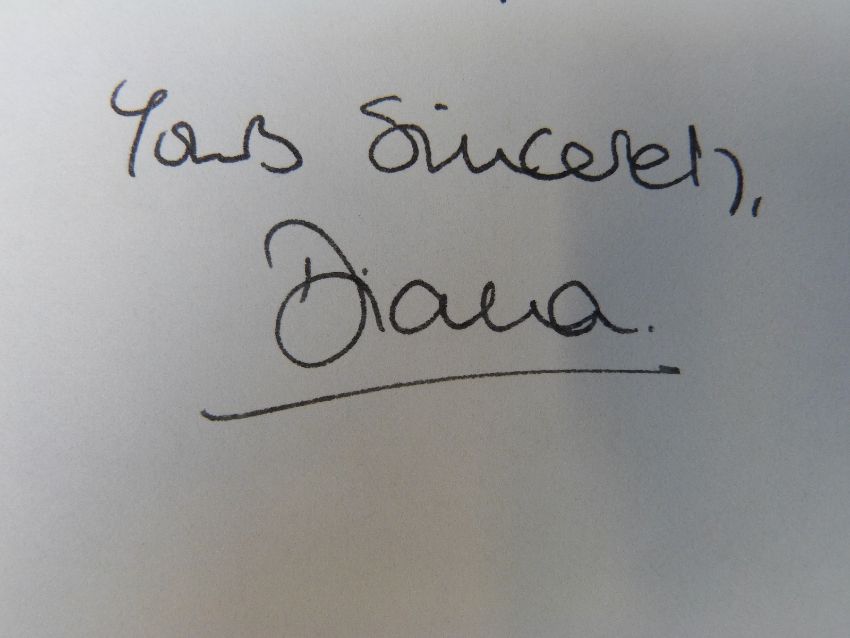 Yours Sincerely,
Diana.